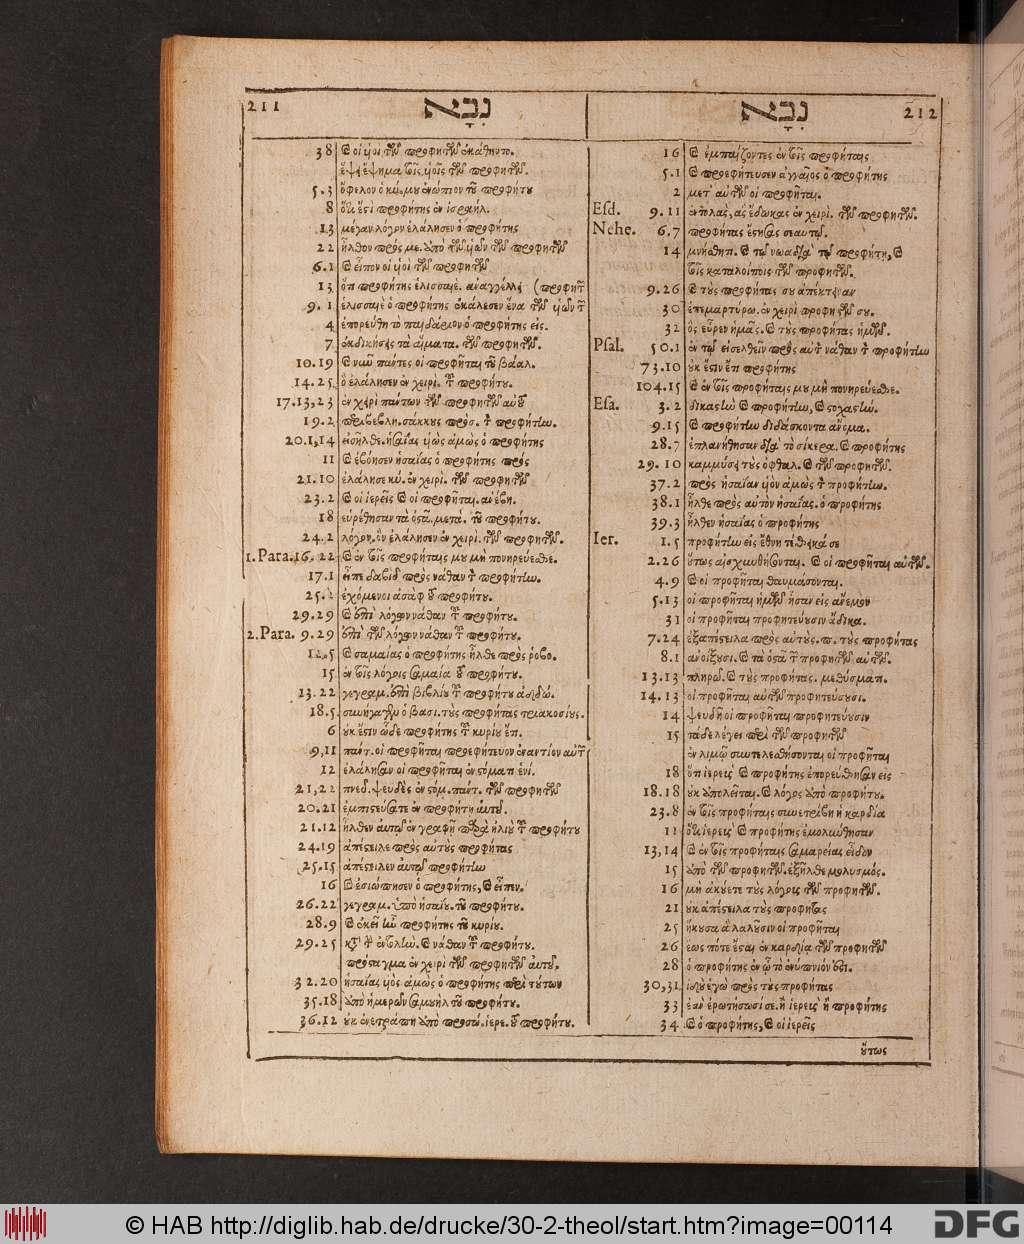 211
נִבָּא
38 ϗ οἱ υἱοὶ τῶν προφητῶν ἐκάθηντο.
ἕψημα τοῖς υἱοῖς τῶν προφητῶν
5.3 ὄφελον ὁ κύ. μου ἐνώπιον τοῦ προφήτου
8 ὅτι ἔστι προφήτης ἐν ἰσραήλ.
13 μέγαν λόγον ἐλάλησεν ὁ προφήτης
22 ἦλθον πρός με. υἱῶν τῶν προφητῶν
6.1 ϗ εἶπον οἱ υἱοὶ τῶν προφητῶν
13 ὅτι προφήτης ἑλισσαιὲ. ἀναγγέλλει (προφητ
9.1 ἑλισσαιὲ ὁ προφήτης ἐκάλεσεν ἕνα τῶν υἱῶν τ
4 ἐπορεύθη τὸ παιδάριον ὁ προφήτης εἰς.
7 ἐκδικήσεις τὰ αἵματα. τῶν προφητῶν.
10.19 ϗ νῦν πάντες οἱ προφῆται τοῦ βάαλ.
14.25 ὃ ἐλάλησεν ἐν χειρὶ. τοῦ προφήτου.
17.13,23 ἐν χειρὶ πάντων τῶν προφητῶν αὐτοῦ
19.2 περιβεβλη. σάκκους πρὸς. τὸν προφήτην.
20.1,14 εἰσῆλθε. ἡσαΐας υἱὸς ἀμὼς ὁ προφήτης
11 ϗ ἐβόησεν ἡσαΐας ὁ προφήτης πρὸς
21.10 ἐλάλησε κύ. ἐν χειρὶ. τῶν προφητῶν
23.2 ϗ οἱ ἱερεῖς ϗ οἱ προφῆται. ἀνέβη.
18 εὑρέθησαν τὰ ὀστᾶ. μετὰ. τοῦ προφήτου.
24.2 λόγον. ὃν ἐλάλησεν ἐν χειρὶ. τῶν προφητῶν.
1.Para.16.22 ϗ ἐν τοῖς προφήταις μου μὴ πονηρεύεσθε.
17.1 εἶπε δαβὶδ πρὸς νάθαν τὸν προφήτην.
25.2 ἐχόμενοι ἀσὰφ τοῦ προφήτου.
29.29 ϗ ἐπὶ λόγων νάθαν τοῦ προφήτου.
2.Para. 9.29 ἐπὶ τῶν λόγων νάθαν τοῦ προφήτου.
12.5 ϗ σαμαίας ὁ προφήτης ἦλθε πρὸς ῥοβο.
15 ἐν τοῖς λόγοις σαμαία τοῦ προφήτου.
13.22 γεγραμ. ἐπὶ βιβλίου τοῦ προφήτου ἀδδώ.
18.5 συνήγαγεν ὁ βασι. τοὺς προφήτας τριακοσίους.
6 οὐκ ἔστιν ὧδε προφήτης τοῦ κυρίου ἔτι.
9,11 πάντ. οἱ προφῆται προεφήτευον ἐναντίον αὐτ
12 ἐλάλησαν οἱ προφῆται ἐν στόματι ἑνὶ.
21,22 πνεῦ. ψευδὲς ἐν στόμ. πάντ. τῶν προφητῶν
20.21 ἐμπιστεύσατε ἐν προφήτῃ αὐτοῦ.
21.12 ἦλθεν αὐτῷ ἐν γραφῇ παρὰ ἠλιοὺ τοῦ προφήτου
24.19 ἀπέστειλε πρὸς αὐτοὺς προφήτας
25.15 ἀπέστειλεν αὐτῷ προφήτην
16 ϗ ἐσιώπησεν ὁ προφήτης, ϗ εἶπεν.
26.22 γεγραμ. ὑπὸ ἡσαΐου. τοῦ προφήτου.
28.9 ϗ ἐκεῖ ἦν προφήτης τοῦ κυρίου.
29.25 κατὰ τὴν ἐντολὴν. ϗ νάθαν τοῦ προφήτου.
πρόσταγμα ἐν χειρὶ τῶν προφητῶν αὐτοῦ.
32.20 ἡσαΐας υἱὸς ἀμὼς ὁ προφήτης περὶ τούτων
35.18 ἀπὸ ἡμερῶν σαμουὴλ τοῦ προφήτου.
36.12 οὐκ ἐνετράπη ἀπὸ προσώ. ἱερε. τοῦ προφήτου.
נִבָּא
212
16 ϗ ἐμπαίζοντες ἐν τοῖς προφήταις
5.1 ϗ προεφήτευσεν ἀγγαῖος ὁ προφήτης
2 μετ᾽ αὐτῶν οἱ προφῆται.
Esd. 9.11 ἐντολὰς, ἃς ἔδωκας ἐν χειρὶ. τῶν προφητῶν.
Nehe. 6.7 προφήτας ἔστησας σεαυτῷ.
14 μνήσθητι. ϗ τῷ νωαδίᾳ τῷ προφήτῃ, ϗ
τοῖς καταλοίποις τῶν προφητῶν.
9.26 ϗ τοὺς προφήτας σου ἀπέκτειναν
30 ἐπεμαρτύρω. ἐν χειρὶ προφητῶν σου.
32 ὃς εὗρεν ἡμᾶς. ϗ τοὺς προφήτας ἡμῶν.
Psal. 50.1 ἐν τῷ εἰσελθεῖν πρὸς αὐτὸν νάθαν τὸν προφήτην
73.10 οὐκ ἔστιν ἔτι προφήτης
104.15 ϗ ἐν τοῖς προφήταις μου μὴ πονηρεύεσθε.
Esa. 3.2 δικαστὴν ϗ προφήτην, ϗ στοχαστὴν.
9.15 ϗ προφήτην διδάσκοντα ἄνομα.
28.7 ἐπλανήθησαν διὰ τὸ σίκερα. ϗ προφήτης
29.10 καμμύσει τοὺς ὀφθαλ. ϗ τῶν προφητῶν.
37.2 πρὸς ἡσαΐαν υἱὸν ἀμὼς τὸν προφήτην.
38.1 ἦλθε πρὸς αὐτὸν ἡσαΐας. ὁ προφήτης
39.3 ἦλθεν ἡσαΐας ὁ προφήτης
Ier. 1.5 προφήτην εἰς ἔθνη τέθεικά σε
2.26 οὕτως αἰσχυνθήσονται. ϗ οἱ προφῆται αὐτῶν.
4.9 ϗ οἱ προφῆται θαυμάσονται.
5.13 οἱ προφῆται ἡμῶν ἦσαν εἰς ἄνεμον
31 οἱ προφῆται προφητεύουσιν ἄδικα.
7.24 ἐξαπέστειλα πρὸς αὐτοὺς. π. τοὺς προφήτας
8.1 ἀνοίξουσι. ϗ τὰ ὀστᾶ τῶν προφητῶν αὐτῶν.
13.13 πληρῶ. ϗ τοὺς προφήτας. μεθύσματι.
14.13 οἱ προφῆται αὐτῶν προφητεύουσι.
14 ψευδῆ οἱ προφῆται προφητεύουσιν
15 τάδε λέγει περὶ τῶν προφητῶν
ἐν λιμῷ συντελεσθήσονται οἱ προφῆται
18 ὅτι ἱερεὺς ϗ προφήτης ἐπορεύθησαν εἰς
18.18 οὐκ ἀπολεῖται. ϗ λόγος ἀπὸ προφήτου.
23.8 ἐν τοῖς προφήταις συνετρίβη ἡ καρδία
11 ὅτι ἱερεὺς ϗ προφήτης ἐμολύνθησαν
13,14 ϗ ἐν τοῖς προφήταις σαμαρείας εἶδον
15 ἀπὸ τῶν προφητῶν. ἐξῆλθε μολυσμός.
16 μὴ ἀκούετε τοὺς λόγους τῶν προφητῶν.
21 οὐκ ἀπέστειλα τοὺς προφήτας
25 ἤκουσα ἃ λαλοῦσιν οἱ προφῆται
26 ἕως πότε ἔσται ἐν καρδίᾳ τῶν προφητῶν
28 ὁ προφήτης ἐν ᾧ τὸ ἐνύπνιόν ἐστι.
30,31 ἰδοὺ ἐγὼ πρὸς τοὺς προφήτας
33 ἐὰν ἐρωτήσωσί σε. ἢ ἱερεὺς ἢ προφήτης
34 ϗ ὁ προφήτης, ϗ οἱ ἱερεῖς
οὕτως
© HAB http://diglib.hab.de/drucke/30-2-theol/start.htm?image=00114
DFG